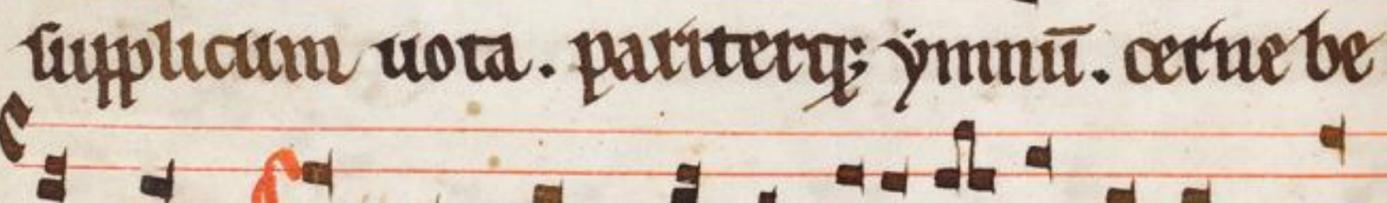 supplicum uota. pariterq; ẏmnū. cerne be